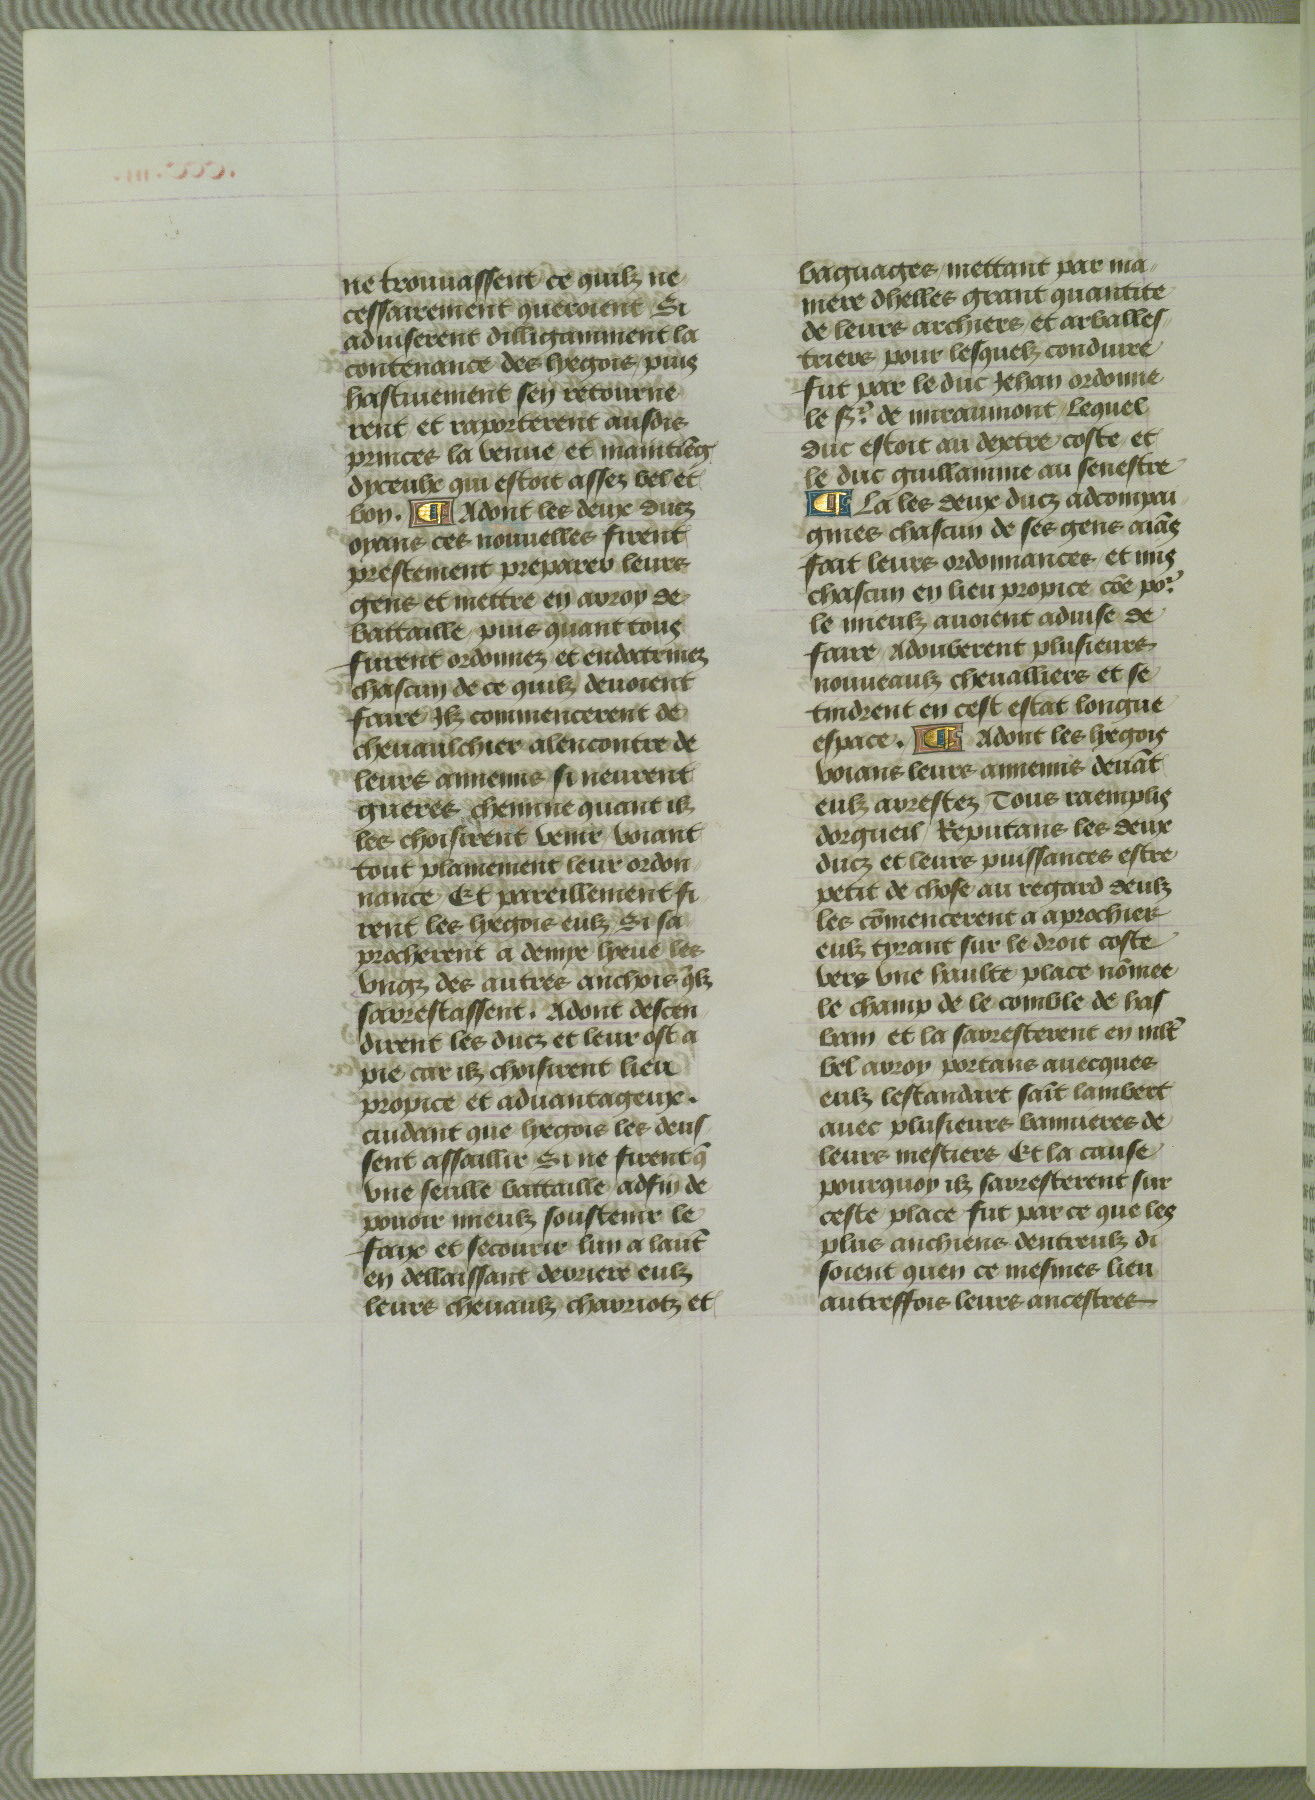 ne trouuassent ce quilz ne
cessairement queroient Si
aduiserent dilligamment la
contenance des lyegois puis
hastiuement sen retourne
rent et raporterent ausdis
princes la venue et maintieg
dyceulx qui estoit assez bel et
bon. ¶ Adont les deux ducz
oyans ces nouuelles firent
prestement preparer leurs
gens et mettre en arroy de
battaille puis quant tous
furent ordonnez et endoctrinez
chascun de ce quilz deuoient
faire Ilz commencerent de
cheuaulchier alencontre de
leurs annemis si neurent
gueres chemine quant ilz
les choisirent venir voiant
tout plainement leur ordon
nance Et pareillement fi
rent les lyegois eulx Si sa
procherent a demye lyeue les
vngz des autres anchois q̃lz
sarrestassent. Adont descen
dirent les ducz et leur ost a
pie car ilz choisirent lieu
propice et aduantageux.
cuidant que lyegois les deus
sent assaillir Si ne firent q̃
vne seulle battaille adfin de
pouoir mieulz soustenir le
faix et secourir lun a laut̃
en dellaissant derriere eulz
leurs cheuaulz charriotz et
baguages mettant par ma
niere dhelles grant quantite
de leurs archiers et arballes
triers pour lesquelz conduire
fut par le duc Jehan ordonne
le sr. de miraumont Lequel
duc estoit au dextre coste et
le duc guillamme au senestre
¶ La les deux ducz adcompai
gnies chascun de ses gens aiãs
fait leurs ordonnances et mis
chascun en lieu propice cõe por
le mieulz auoient aduise de
faire Adouberent plusieurs
nouueaulz cheualliers et se
tindrent en cest estat longue
espace. ¶ Adont les lyegois
voians leurs annemis deuãt
eulz arrestez Tous raemplis
dorgueil Reputans les deux
ducz et leurs puissances estre
petit de chose au regard deulz
les cõmencerent a aprochier
eulz tyrant sur le droit coste
vers vne haulte place nõmee
le champ de le comble de has
bain et la sarresterent en mlt̃
bel arroy portans auecques
eulz lestandart sait̃ lambert
auec plusieurs bannieres de
leurs mestiers Et la cause
pourquoy ilz sarresterent sur
ceste place fut par ce que les
plus anchiens dentreulz di
soient quen ce mesmes lieu
autreffois leurs ancestres